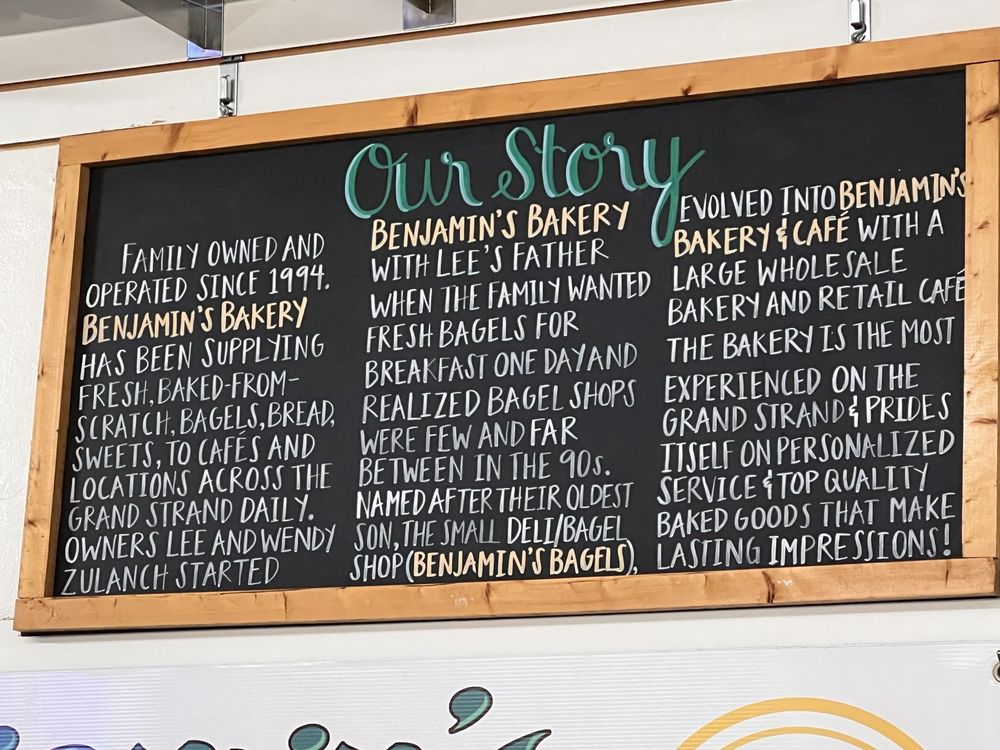 Our Story
FAMILY OWNED AND
OPERATED SINCE 1994.
BENJAMIN'S BAKERY
HAS BEEN SUPPLYING
FRESH, BAKED-FROM-
SCRATCH, BAGELS, BREAD,
SWEETS, TO CAFÉS AND
LOCATIONS ACROSS THE
GRAND STRAND DAILY.
OWNERS LEE AND WENDY
ZULANCH STARTED
BENJAMIN'S BAKERY
WITH LEE'S FATHER
WHEN THE FAMILY WANTED
FRESH BAGELS FOR
BREAKFAST ONE DAY AND
REALIZED BAGEL SHOPS
WERE FEW AND FAR
BETWEEN IN THE 90s.
NAMED AFTER THEIR OLDEST
SON, THE SMALL DELI/BAGEL
SHOP (BENJAMIN'S BAGELS),
EVOLVED INTO BENJAMIN'S
BAKERY & CAFÉ WITH A
LARGE WHOLESALE
BAKERY AND RETAIL CAFÉ
THE BAKERY IS THE MOST
EXPERIENCED ON THE
GRAND STRAND & PRIDES
ITSELF ON PERSONALIZED
SERVICE & TOP QUALITY
BAKED GOODS THAT MAKE
LASTING IMPRESSIONS!